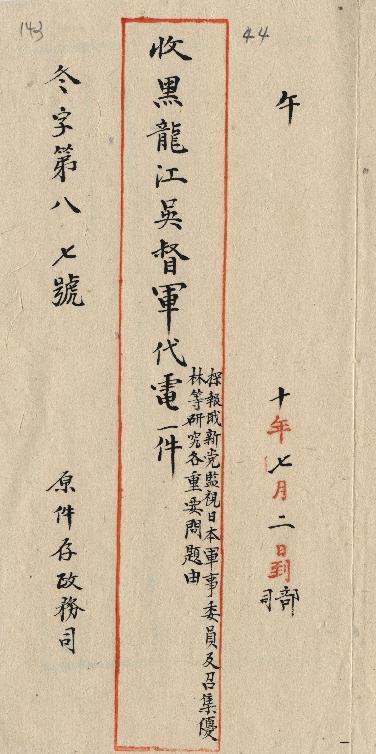 44
午
十年七月二日到部
司
收黑龍江吳督軍代電一件
探報俄新党監視日本軍事委員及召集優
林等研究各重要問題由
冬字第八七號
原件存政務司
143